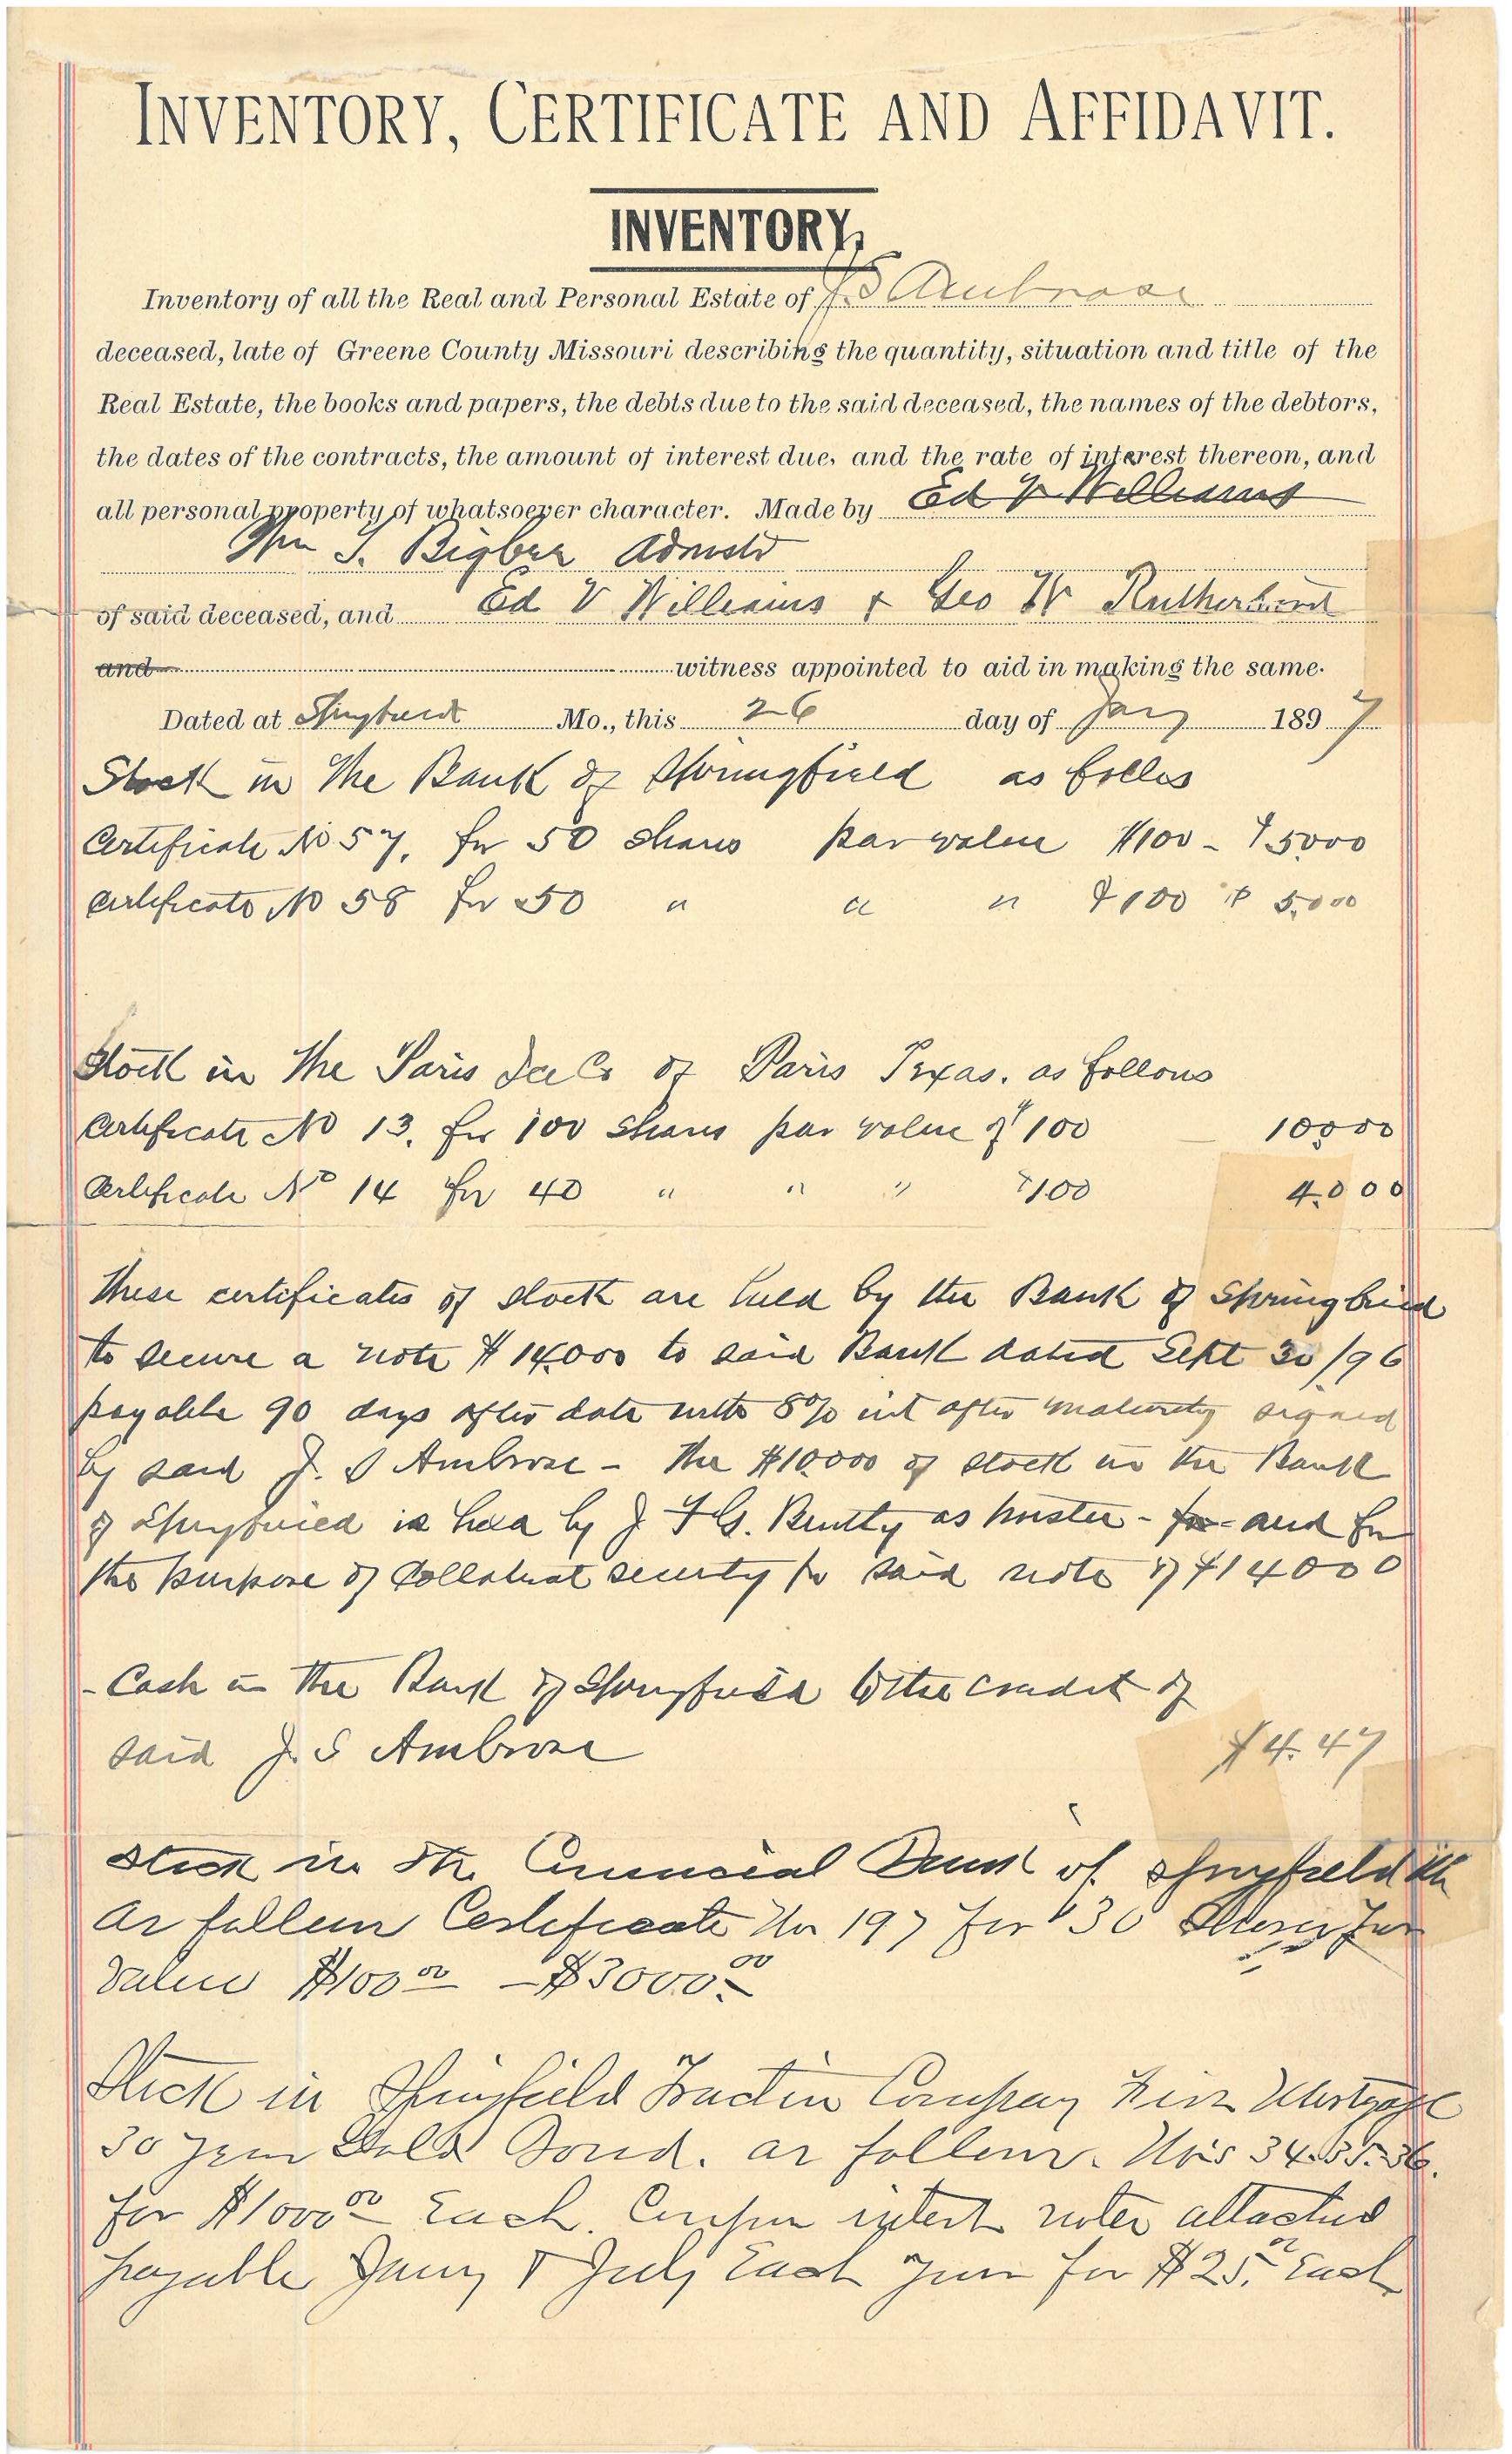 INVENTORY, CERTIFICATE AND AFFIDAVIT.
INVENTORY,
Inventory of all the Real and Personal Estate of J. S Ambrose
deceased, late of Greene County Missouri describing the quantity, situation and title of the
Real Estate, the books and papers, the debts due to the said deceased, the names of the debtors,
the dates of the contracts, the amount of interest due, and the rate of interest thereon, and
all personal property of whatsoever character. Made by Ed V Williams
Wm S. Admstr
of said deceased, and Ed V Williams & Geo W Rutherford
and witness appointed to aid in making the same.
Dated at Springfield Mo., this 26 day of Jany 1897
Stock in The Bank of Springfield as
Certificate No 57, for 50 shares par value $100 - $5000
Certificate No 58 for 50 " " " $100 $ 5,000
Stock in The Paris Ice Co of Paris Texas. as follows
Certificate No 13. for 100 shares par value of $100 — 10,000
Certificate No 14 for 40 " " " $100 4,000
These certificates of stock are held by the Bank of Springfield
to secure a note $14,000 to said Bank dated Sept 30/96
payable 90 days after date with 8% int after maturity signed
by said J. S Ambrose - The $10,000 of stock in the Bank
of Springfield is held by J F G. Bentty as trustee - for - and for
the purpose of Collateral security for said note of $14000
- Cash in the Bank of Springfield to the credit of
said J. S Ambrose $4.47
Stock in the Commercial Bank of Springfield Mo
as follows Certificate No 197 for 30 Shares Par
Value $100 00 - $3000. 00
Stock in Springfield Traction Company First Mortgage
30 year Gold Bond. as follows. No's 34.35.36.
for $1000 00 Each. Coupon interest notes attached
payable Jany & July Each year for $25. 00 Each